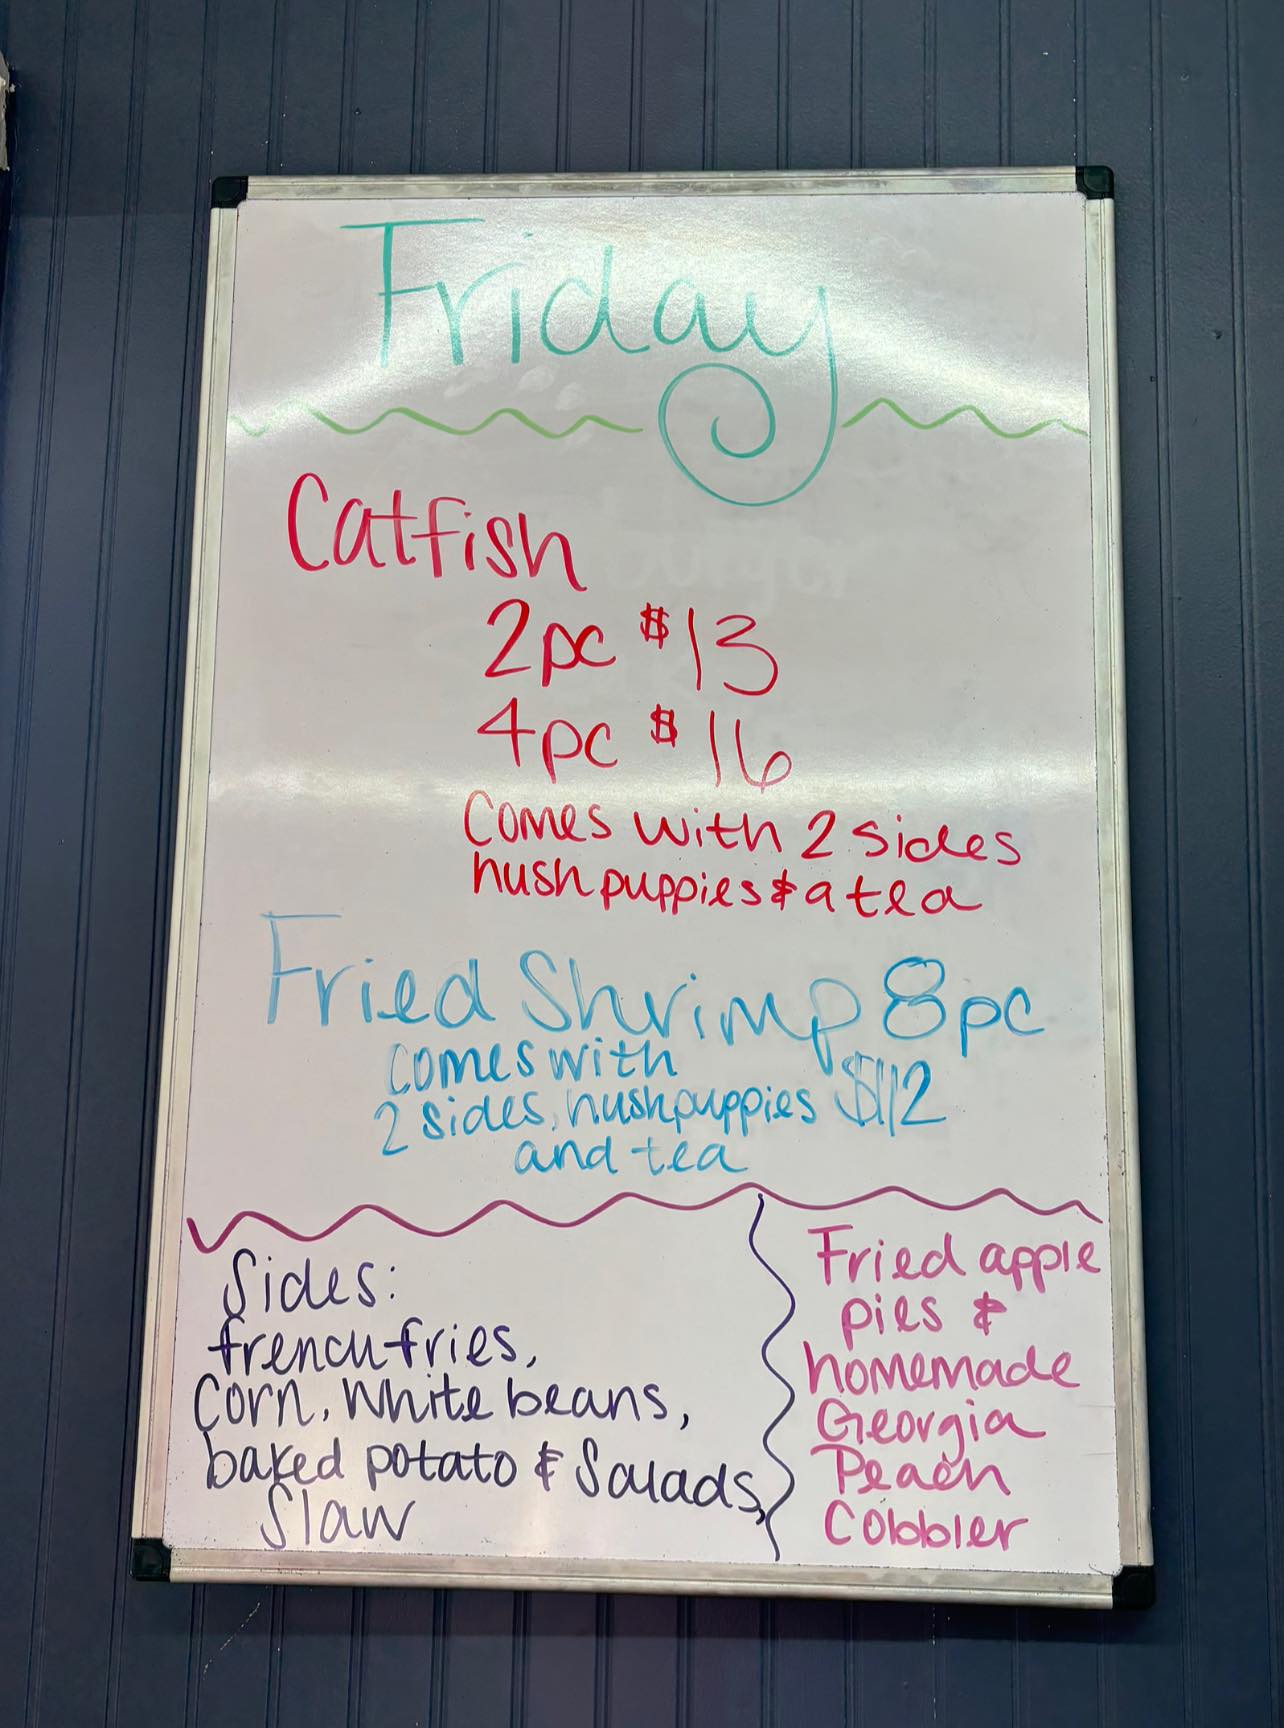 Friday
Catfish
2pc $13
4pc $16
Comes with 2 sides
hushpuppies & a tea
Fried Shrimp 8pc
comes with
2 sides, hushpuppies $12
and tea
Sides:
french fries,
Corn, White beans,
baked potato & Salads,
Slaw
Fried apple
pies &
homemade
Georgia
Peach
Cobbler